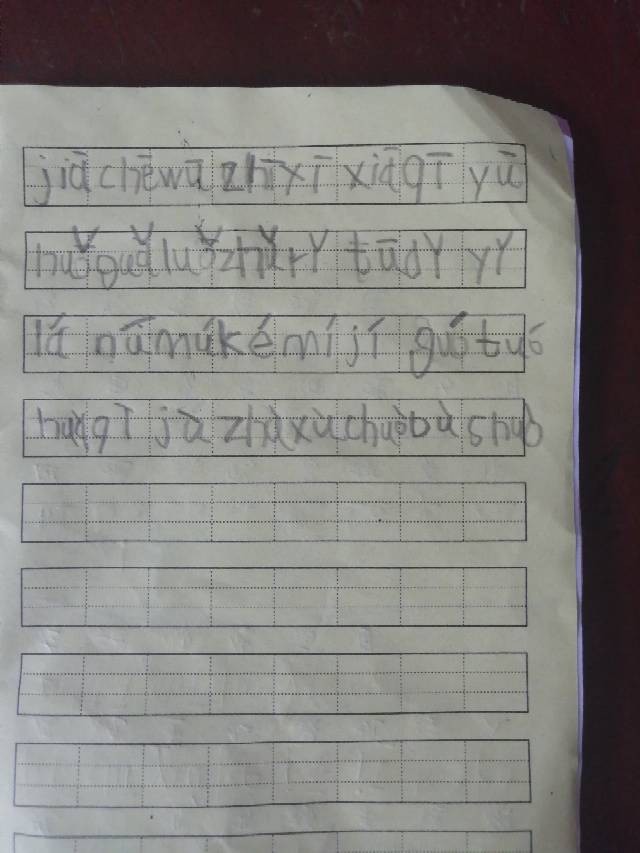 jiā chē wū zhī xī xiā qī yū
huǒ guǎ luǒ zhǔ rǐ tū dǐ yǐ
lá nú mú ké mí jí guó tuó
huà qī jà zhà xù chuò bù shuò